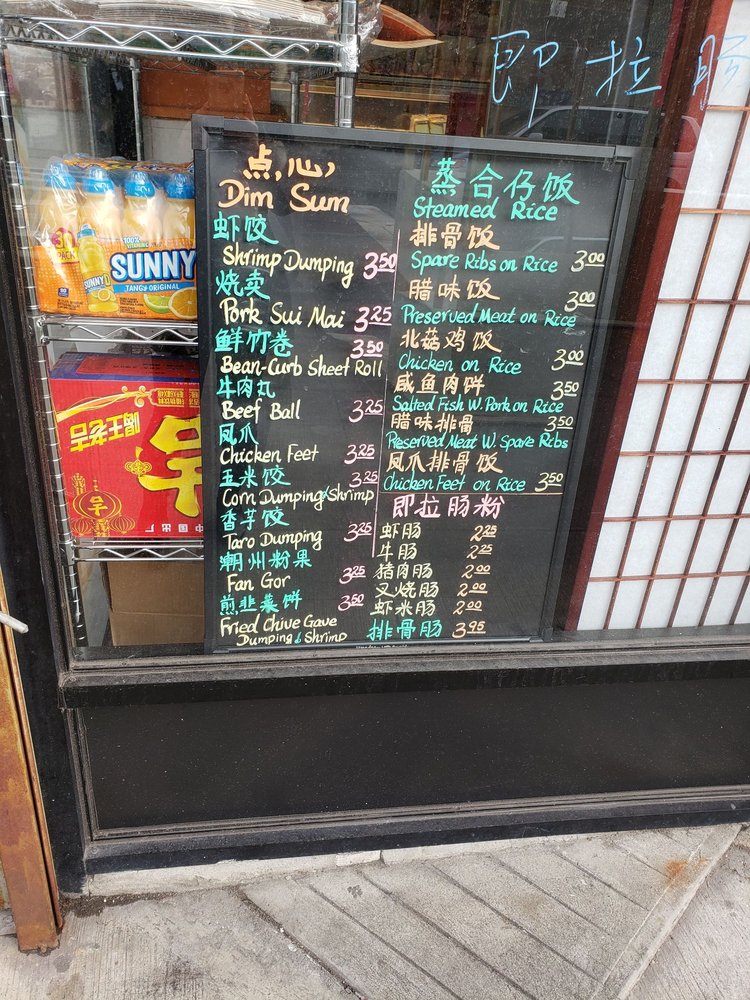 即拉肠
点心
Dim Sum
虾饺
Shrimp Dumping 3.50
烧卖
Pork Sui Mai 3.25
鲜竹卷 3.50
Bean-Curb Sheet Roll
牛肉丸
Beef Ball 3.25
凤爪
Chicken Feet 3.25
玉米饺 3.25
Corn Dumping & Shrimp
香芋饺
Taro Dumping 3.25
潮州粉果
Fan Gor 3.25
煎韭菜饼 3.50
Fried Chive Gave
Dumping & Shrimp
蒸合仔饭
Steamed Rice
排骨饭
Spare Ribs on Rice 3.00
腊味饭 3.00
Preserved Meat on Rice
北菇鸡饭
Chicken on Rice 3.00
咸鱼肉饼 3.50
Salted Fish W. Pork on Rice
腊味排骨 3.50
Preserved Meat W. Spare Ribs
凤爪排骨饭
Chicken Feet on Rice 3.50
即拉肠粉
虾肠 2.25
牛肠 2.25
猪肉肠 2.00
叉烧肠 2.00
虾米肠 2.00
排骨肠 3.95
100%
VITAMIN C
SUNNYD
SUNNY
TANGY ORIGINAL
PACK
喝王老吉
吉
中国出厂